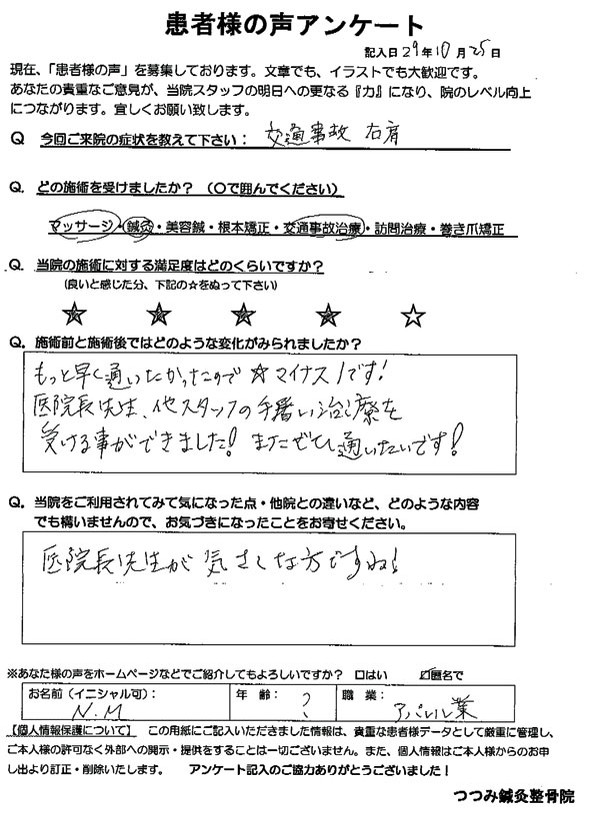 患者様の声アンケート
記入日29年10月25日
現在、「患者様の声」を募集しております。文章でも、イラストでも大歓迎です。
あなたの貴重なご意見が、当院スタッフの明日への更なる『力』になり、院のレベル向上
につながります。宜しくお願い致します。
Q 今回ご来院の症状を教えて下さい： 交通事故 右肩
Q. どの施術を受けましたか？（〇で囲んでください）
マッサージ・鍼灸・美容鍼・根本矯正・交通事故治療・訪問治療・巻き爪矯正
Q. 当院の施術に対する満足度はどのくらいですか？
（良いと感じた分、下記の☆をぬって下さい）
★ ★ ★ ★ ☆
Q. 施術前と施術後ではどのような変化がみられましたか？
もっと早く通いたかったので☆マイナス1です!
医院長先生、他スタッフの手暑い治療を
受ける事ができました! またぜひ通いたいです!
Q. 当院をご利用されてみて気になった点・他院との違いなど、どのような内容
でも構いませんので、お気づきになったことをお寄せください。
医院長先生が気さくな方ですね!
※あなた様の声をホームページなどでご紹介してもよろしいですか？ 口はい ☑匿名で
お名前（イニシャル可）： 年 齢： ? 職 業：
N.M アパレル業
【個人情報保護について】 この用紙にご記入いただきました情報は、貴重な患者様データとして厳重に管理し、
ご本人様の許可なく外部への開示・提供をすることは一切ございません。また、個人情報はご本人様からのお申
し出より訂正・削除いたします。 アンケート記入のご協力ありがとうございました！
つつみ鍼灸整骨院